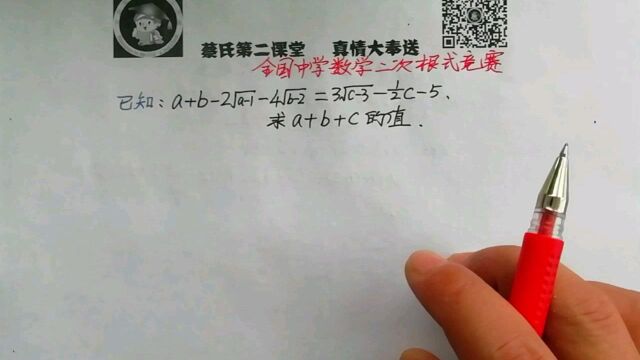 蔡氏第二课堂 真情大奉送
全国中学数学二次根式竞赛
已知：a+b-2√a-1-4√b-2=3√c-3-½c-5.
求a+b+c的值.